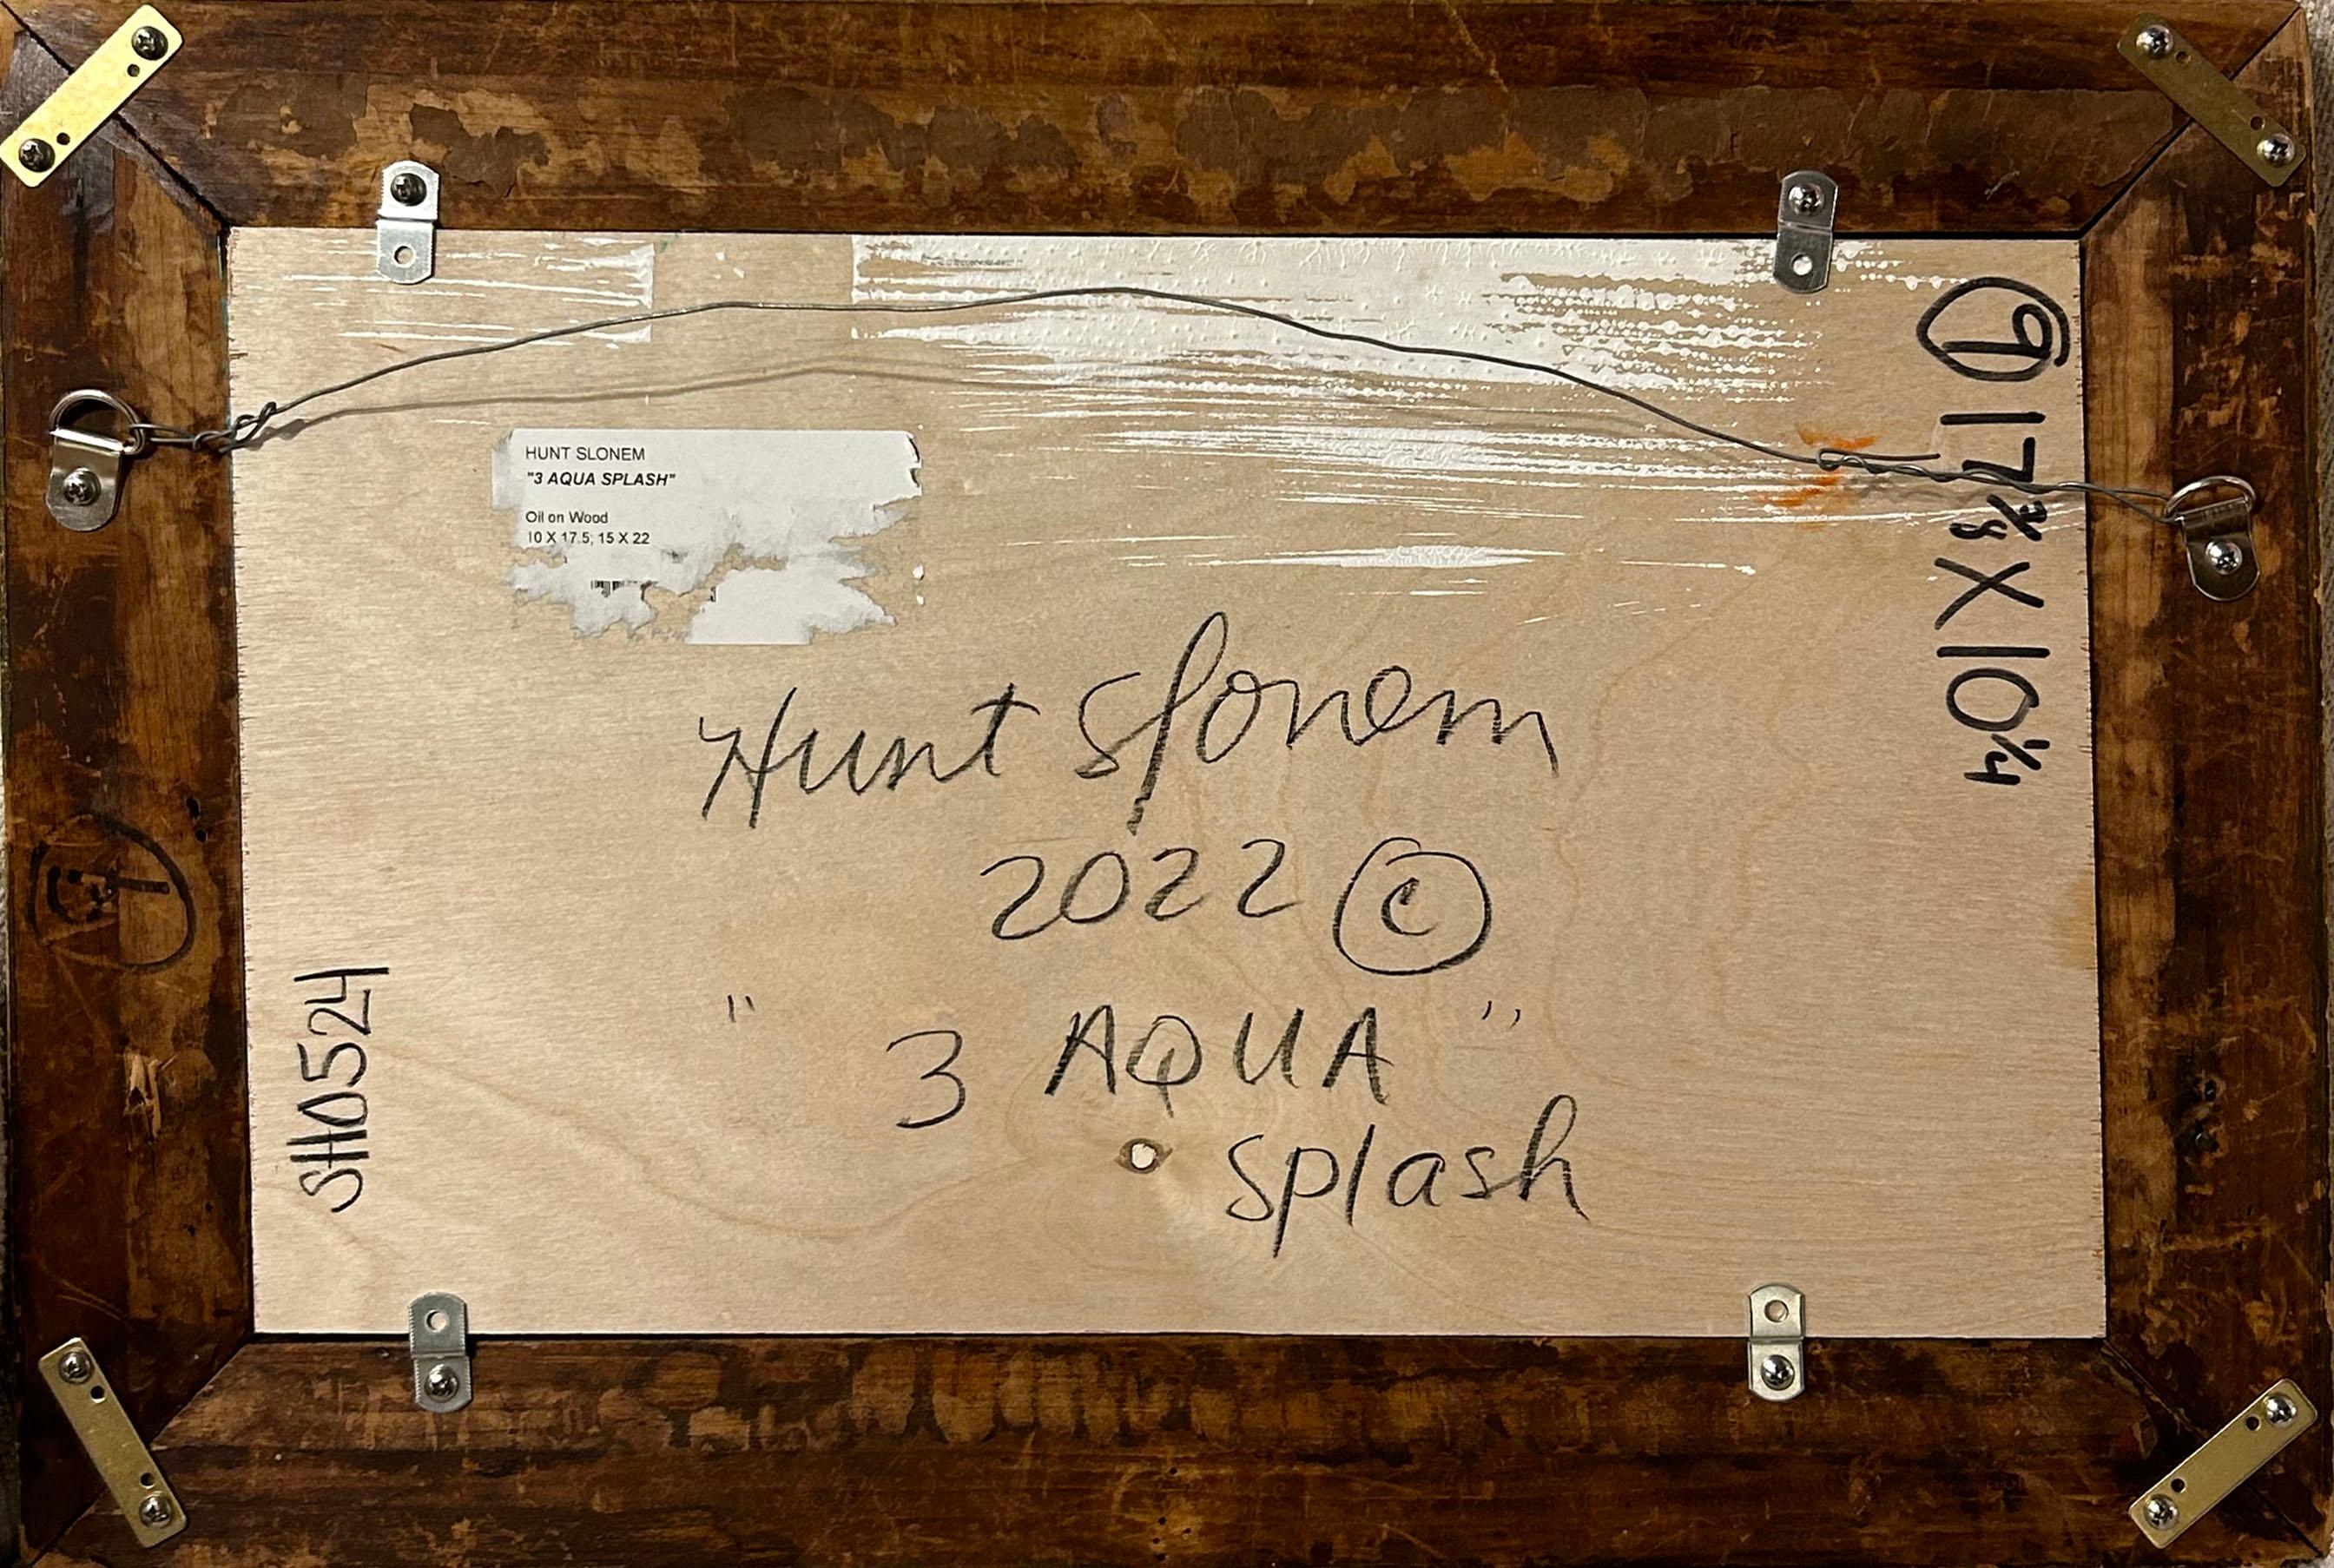 HUNT SLONEM
"3 AQUA SPLASH"
Oil on Wood
10 X 17.5; 15 X 22
Hunt Slonem
2022 ©
"3 AQUA"
splash
SH0524
9 17 3/8 X 10 1/4